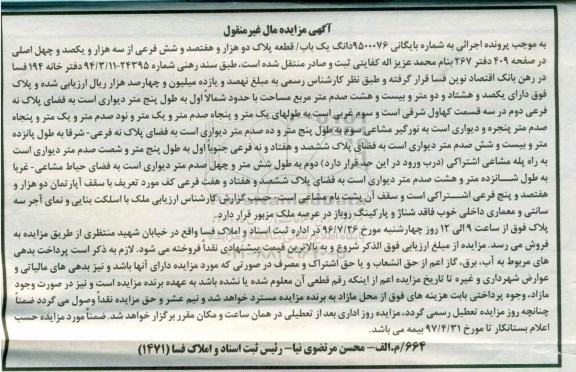 آگهی مزایده مال غیرمنقول
به موجب پرونده اجرائی به شماره بایگانی ۹۵۰۰۰۷۶ دانگ یک باب/ قطعه پلاک دو هزار و هفتصد و شش فرعی از سه هزار و یکصد و چهل اصلی
در صفحه ۴۰۹ دفتر ۲۶۷ بنام محمد عزیز اله کفایتی ثبت و صادر منتقل شده است، طبق سند رهنی شماره ۲۴۳۹۵-۹۴/۳/۱۱ دفتر خانه ۱۹۴ فسا
در رهن بانک اقتصاد نوین فسا قرار گرفته و طبق نظر کارشناس رسمی به مبلغ نهصد و یازده میلیون و چهارصد هزار ریال ارزیابی شده و پلاک
فوق دارای یکصد و هشتاد و دو متر و بیست و هشت صدم متر مربع مساحت با حدود شمالاً اول به طول پنج متر دیواری است به فضای پلاک نه
فرعی دوم در سه قسمت کهاول شرقی است و سوم غربی است به طولهای یک متر و پنجاه صدم متر و یک متر و نود صدم متر و یک متر و پنجاه
صدم متر پنجره و دیواری است به نورگیر مشاعی سوم به طول پنج متر و ده صدم متر دیواری است به فضای پلاک نه فرعی- شرقا به طول پانزده
متر و بیست و شش صدم متر دیواری است به فضای پلاک ششصد و هفتاد و نه فرعی جنوباً اول به طول پنج متر و شصت صدم متر دیواری است
به راه پله مشاعی اشتراکی (درب ورود در این حد قرار دارد) دوم به طول شش متر و چهل صدم متر دیواری است به فضای حیاط مشاعی- غربا
به طول شانزده متر و هشت صدم متر دیواری است به فضای پلاک ششصد و هفتاد و هفت فرعی کف مورد تعریف با سقف آپارتمان دو هزار و
هفتصد و پنج فرعی اشتراکی است و سقف آن پشت بام مشاعی است- حسب گزارش کارشناس ارزیابی ملک با اسکلت بنایی و نمای آجر سه
سانتی و معماری داخلی خوب فاقد شناژ و پارکینگ روباز در عرصه ملک مزبور قرار دارد.
پلاک فوق از ساعت ۹ الی ۱۲ روز چهارشنبه مورخ ۹۶/۷/۲۶ در اداره ثبت اسناد و املاک فسا واقع در خیابان شهید منتظری از طریق مزایده به
فروش می رسد. مزایده از مبلغ ارزیابی فوق الذکر شروع و به بالاترین قیمت پیشنهادی نقدا فروخته می شود. لازم به ذکر است پرداخت بدهی
های مربوط به آب، برق، گاز اعم از حق انشعاب و یا حق اشتراک و مصرف در صورتی که مورد مزایده دارای آنها باشد و نیز بدهی های مالیاتی و
عوارض شهرداری و غیره تا تاریخ مزایده اعم از اینکه رقم قطعی آن معلوم شده یا نشده باشد به عهده برنده مزایده است و نیز در صورت وجود
مازاد، وجوه پرداختی بابت هزینه های فوق از محل مازاد به برنده مزایده مسترد خواهد شد و نیم عشر و حق مزایده نقداً وصول می گردد ضمناً
چنانچه روز مزایده تعطیل رسمی گردد، مزایده روز اداری بعد از تعطیلی در همان ساعت و مکان مقرر برگزار خواهد شد. ضمناً مورد مزایده حسب
اعلام بستانکار تا مورخ ۹۷/۴/۳۱ بیمه می باشد.
۶۶۴/م.الف- محسن مرتضوی نیا- رئیس ثبت اسناد و املاک فسا (۱۴۷۱)